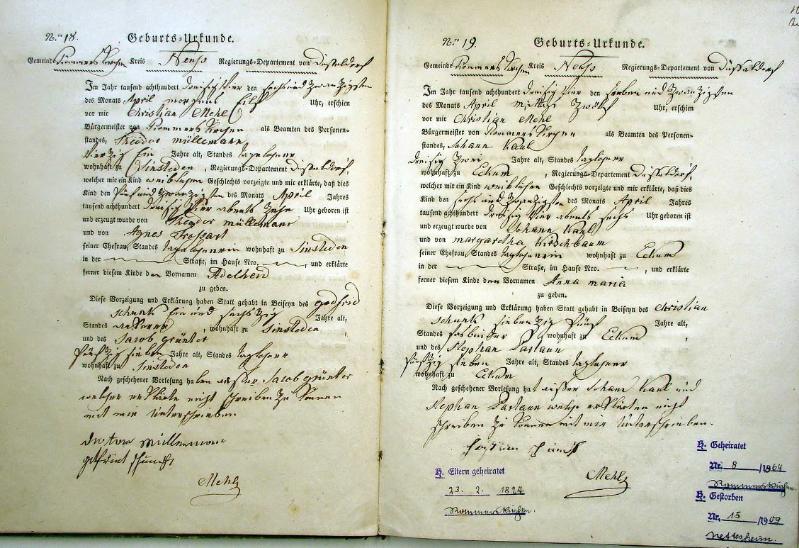 Nro 18. Geburts-Urkunde.
Gemeinde Rommerskirchen Kreis Neuß Regierungs-Departement von Düsseldorf
Im Jahr tausend achthundert dreißig vier den sechs und zwanzigsten
des Monats April morgens eilf Uhr, erschien
vor mir Christian Mehl
Bürgermeister von Rommerskirchen als Beamten des Personen-
standes, Theodor müllemann
vierzig ein Jahre alt, Standes taglohner
wohnhaft zu Sinsteden, Regierungs-Departement Düsseldorf,
welcher mir ein Kind weiblichen Geschlechts vorzeigte und mir erklärte, daß dies
Kind den fünf und zwanzigsten des Monats April Jahres
tausend achthundert dreißig vier abends zehn Uhr geboren ist
und erzeugt wurde von Theodor müllemann
und von Agnes
seiner Ehefrau, Standes taglohnerin wohnhaft zu Sinsteden
in der Straße, im Hause Nro. , und erklärte
ferner diesem Kinde den Vornamen Adelheid
zu geben.
Diese Vorzeigung und Erklärung haben Statt gehabt in Beiseyn des godfrid
schunk ein und sechszig Jahre alt,
Standes , wohnhaft zu Sinsteden
und des Jacob grünter
fünfzig sieben Jahre alt, Standes taglohner
wohnhaft zu Sinsteden
Nach geschehener Vorlesung haben außer Jacob grünter
welcher erklärte nicht schreiben zu können
mit mir unterschrieben
müllemann
gotfrid schunk
Mehl
Nro 19. Geburts-Urkunde.
Gemeinde Rommerskirchen Kreis Neuß Regierungs-Departement von Düsseldorf
Im Jahr tausend achthundert dreißig vier den sieben und zwanzigsten
des Monats April mittags zwölf Uhr, erschien
vor mir Christian Mehl
Bürgermeister von Rommerskirchen als Beamten des Personen-
standes, Johann Kaul
dreißig zwei Jahre alt, Standes taglohner
wohnhaft zu Eckum, Regierungs-Departement Düsseldorf,
welcher mir ein Kind weiblichen Geschlechts vorzeigte und mir erklärte, daß dies
Kind den sechs und zwanzigsten des Monats April Jahres
tausend achthundert dreißig vier abends sechs Uhr geboren ist
und erzeugt wurde von Johann Kaul
und von margaretha Kirschbaum
seiner Ehefrau, Standes taglohnerin wohnhaft zu Eckum
in der Straße, im Hause Nro. , und erklärte
ferner diesem Kinde den Vornamen Anna maria
zu geben.
Diese Vorzeigung und Erklärung haben Statt gehabt in Beiseyn des Christian
schunk siebenzig fünf Jahre alt,
Standes , wohnhaft zu Eckum
und des Stephan
fünfzig sieben Jahre alt, Standes taglohner
wohnhaft zu Eckum
Nach geschehener Vorlesung hat außer Johann Kaul und
Stephan welche erklärten nicht
schreiben zu können mit mir unterschrieben.
schunck
Mehl
H. Eltern geheiratet
23. 2. 1824
Rommerskirchen.
H. Geheiratet
Nr. 8 /1864
Rommerskirchen
H. Gestorben
Nr. 15 /1909
Nettesheim.